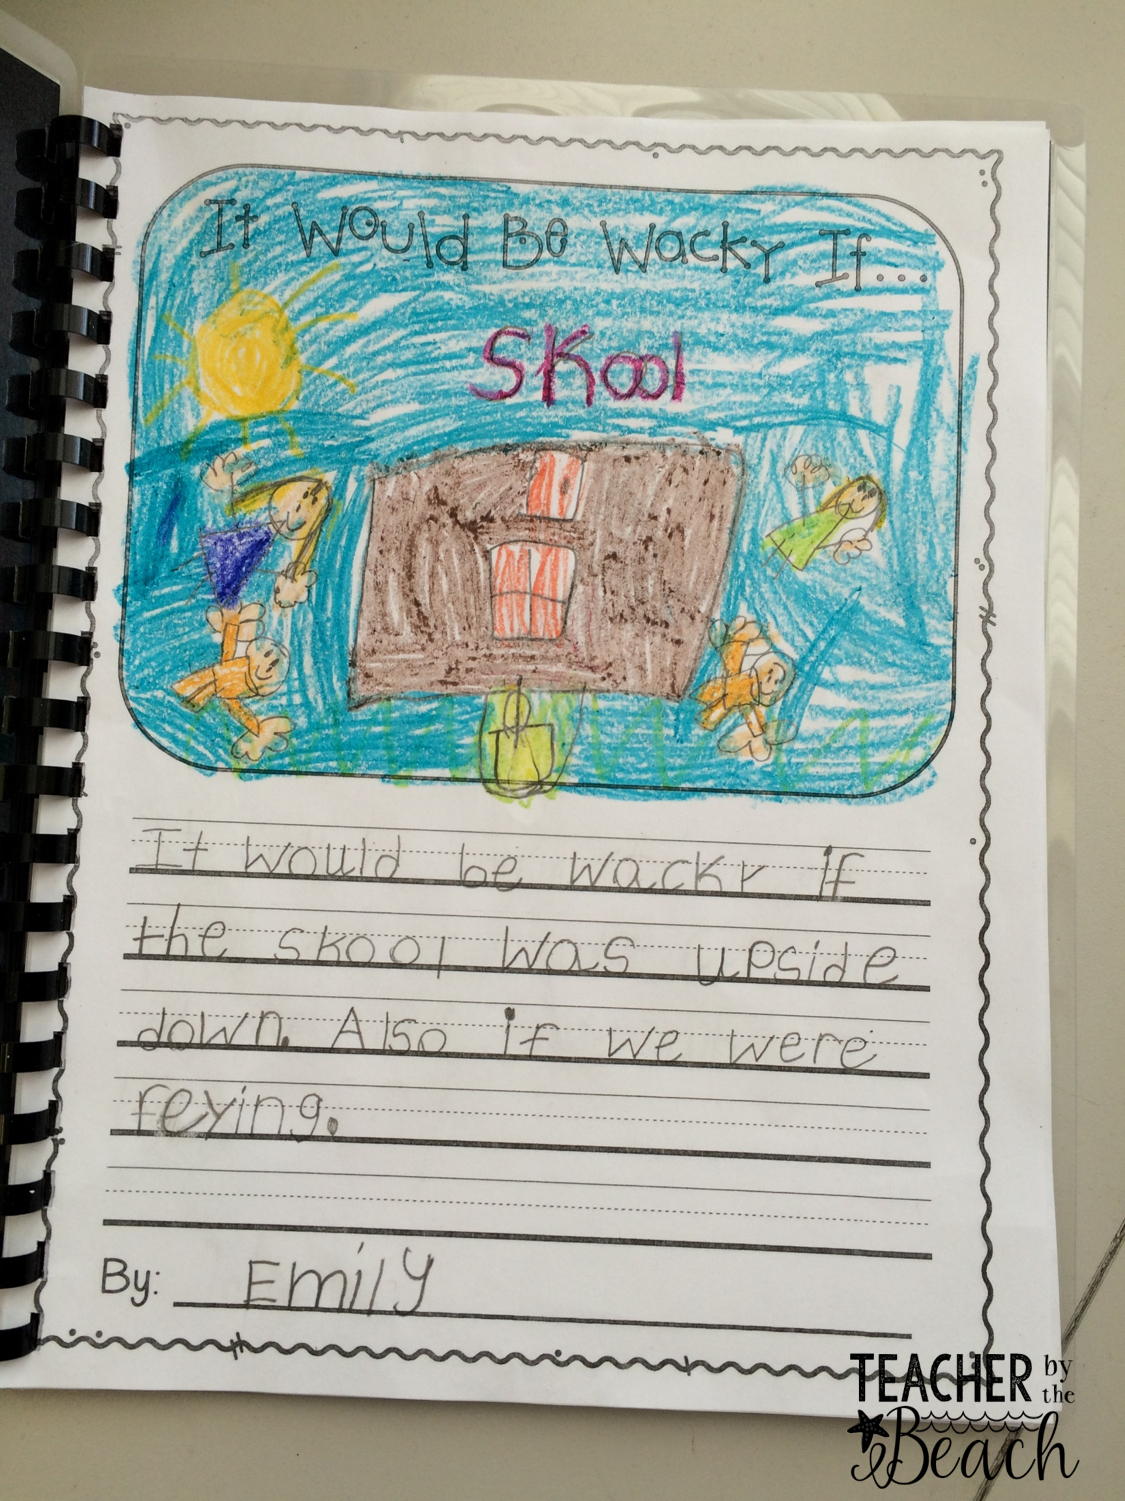 It Would Be Wacky If...
Skool
It would be wacky if
the skool was upside
down. Also if we were
feying.
By: Emily
TEACHER by the
Beach